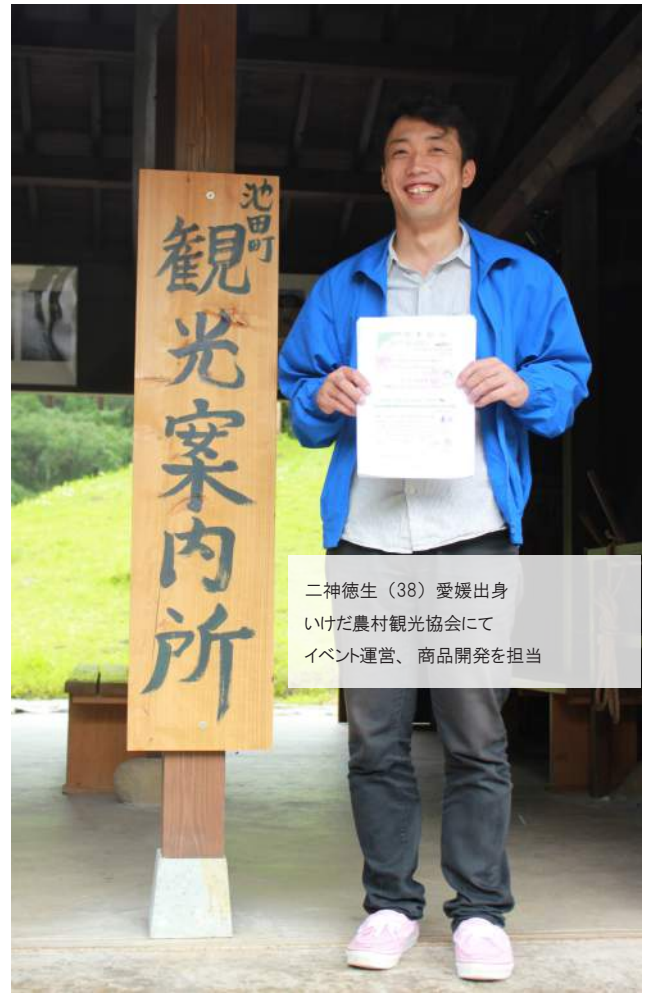 池田町
観光案内所
二神徳生（38）愛媛出身
いけだ農村観光協会にて
イベント運営、商品開発を担当